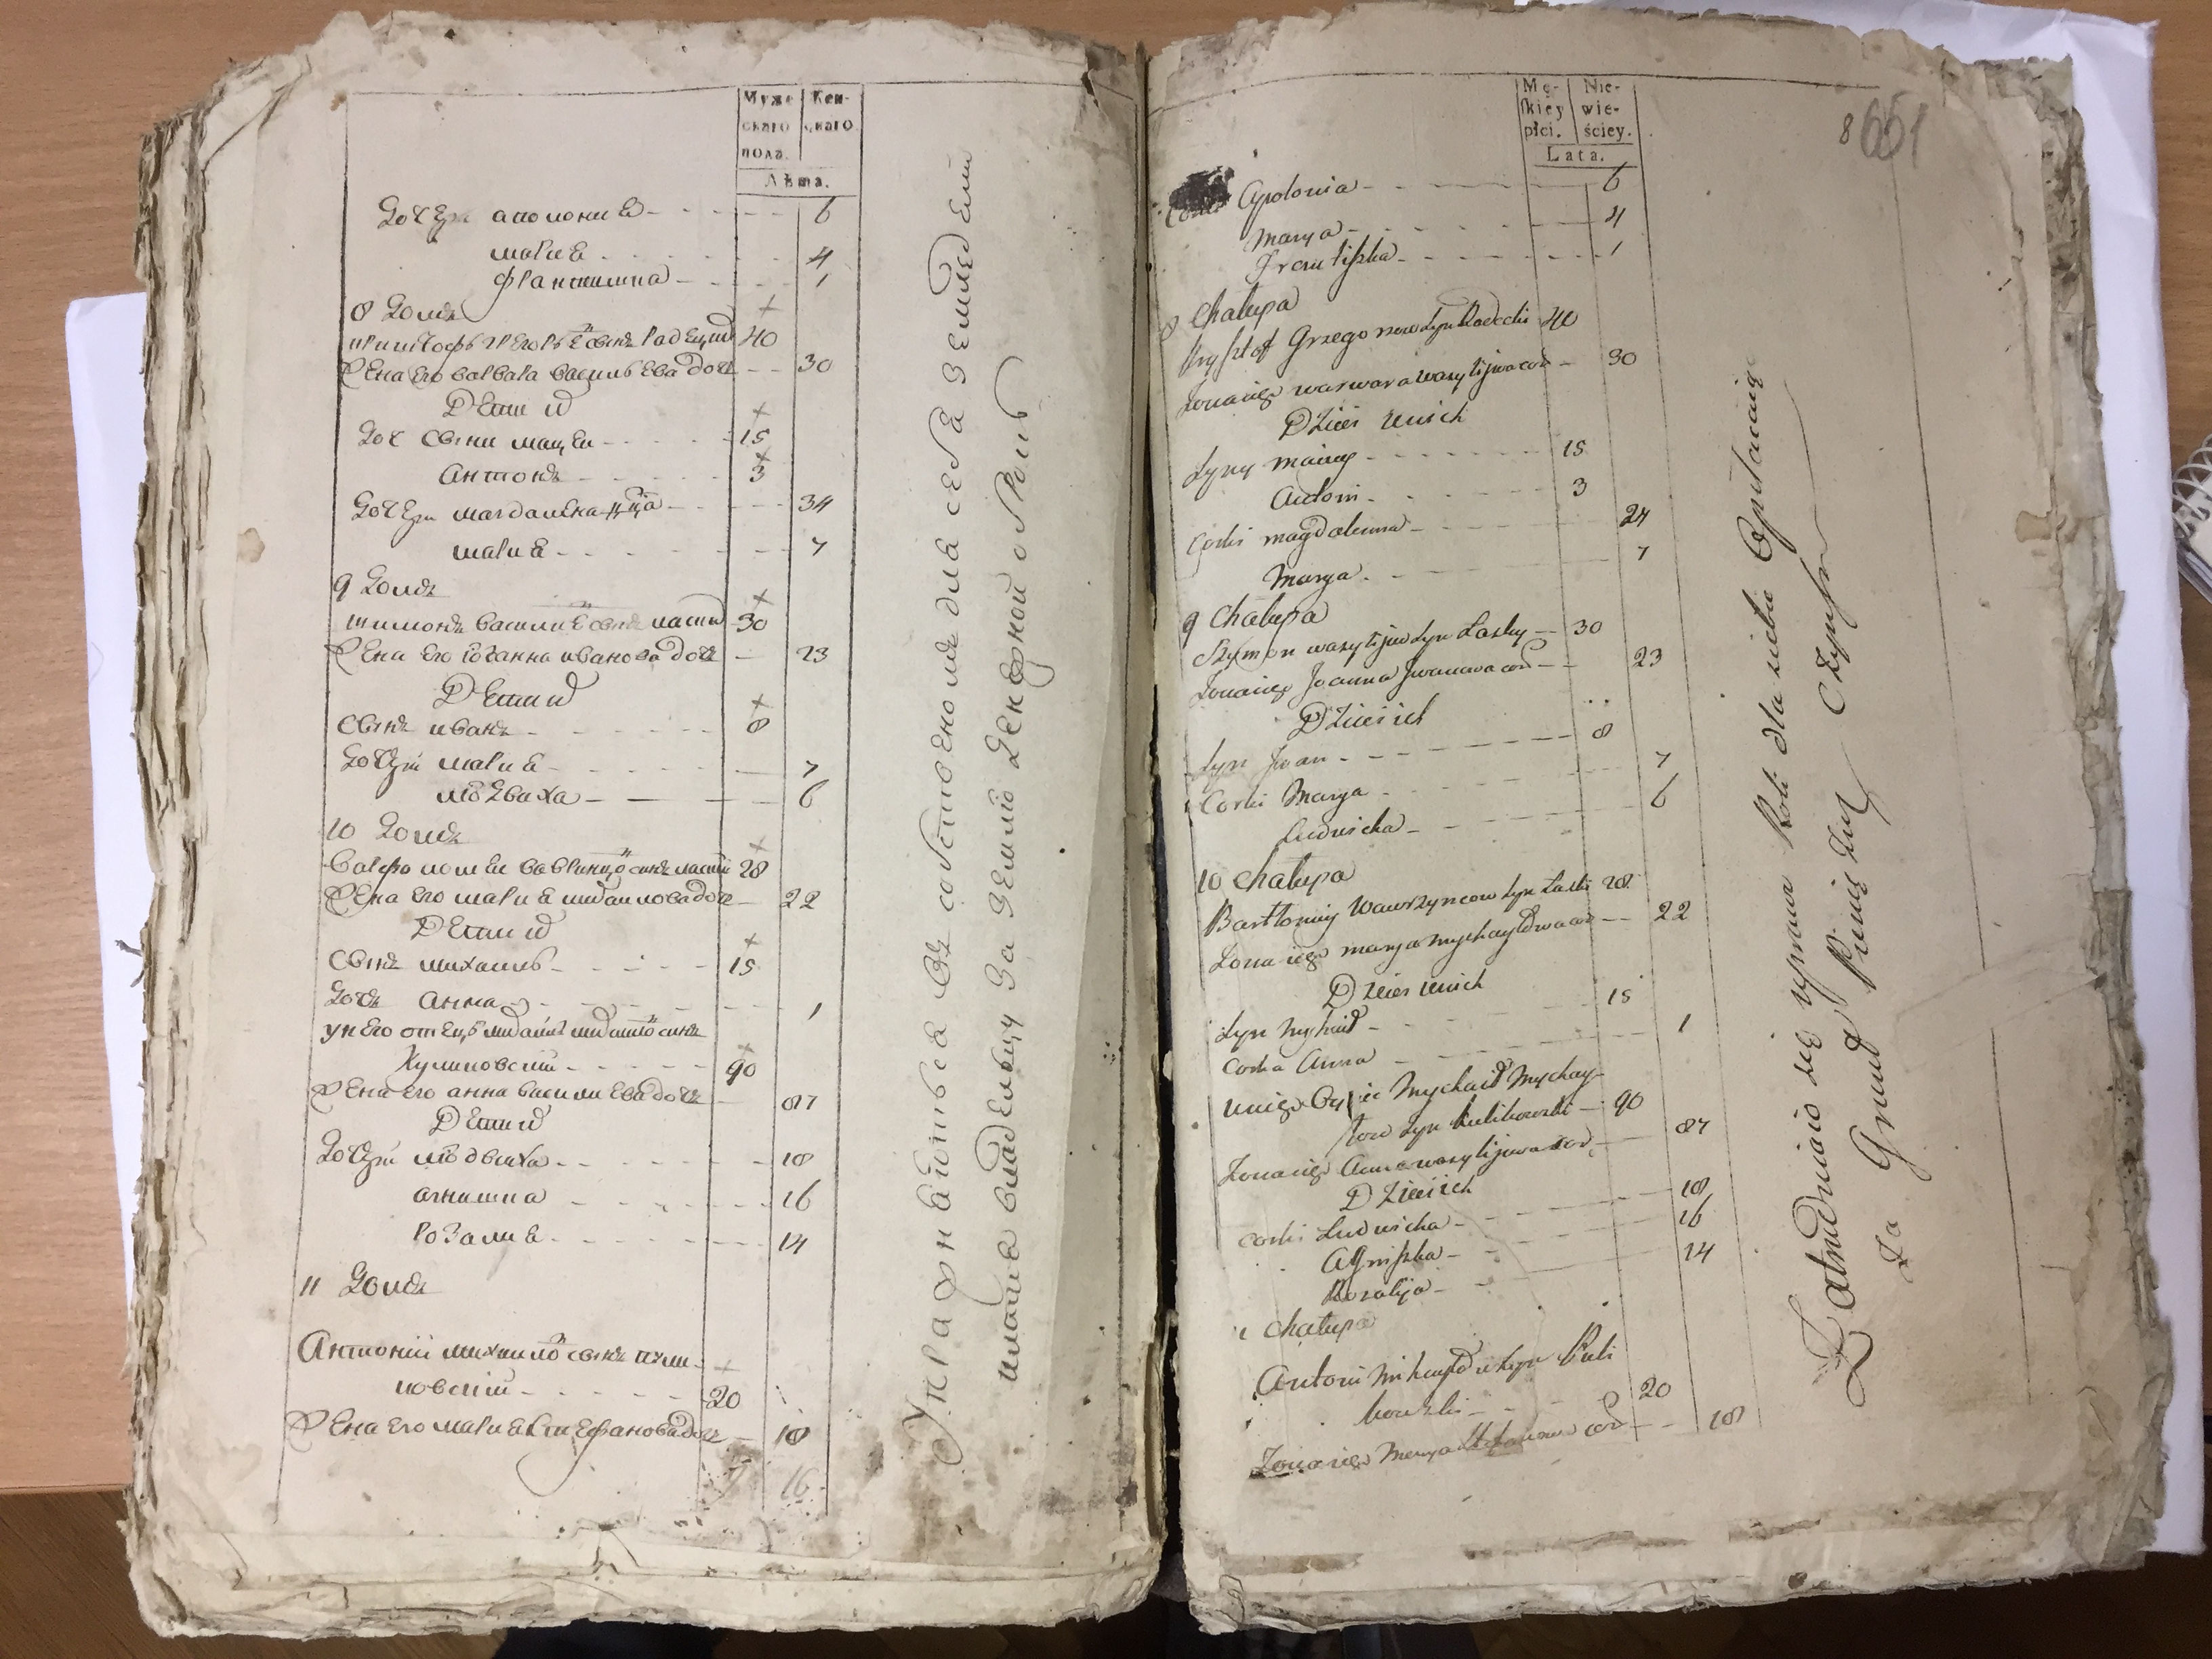 Муже Жен-
скаго скаго
пола.
Лѣта.
Дочери аполонія 6
мария 4
францишка 1
8 домъ
криштофъ Грегорьевъ сынъ Радецкій 40
Жена его варвара васильева дочь 30
Дети их
сыни мацей 15
Антонъ 3
Дочери магдалена 34
мария 7
9 домъ
шимонъ василиевъ сынъ ласкій 30
Жена его іоганна иванова дочь 23
Дети их
сынъ иванъ 8
Дочери мария 7
людвика 6
10 домъ
варфоломей сынъ ласкій 28
Жена его мария михайлова дочь 22
Дети их
сынъ михаилъ 15
Дочь Анна 1
у него отецъ михаилъ михайловъ сынъ
Куликовскій 90
Жена его анна василиева дочь 87
Дети их
Дочери людвика 18
агнишка 16
Розалия 14
11 домъ
Антоній михайловъ сынъ кули-
ковскій 20
Жена его мария Стефанова дочь 18
16
Упражняются въ собственомъ для себя Земледелии
и платя владельцу за землю денежной оброкъ
Mę- Nie-
skiey wie-
płci. ściey.
Lata.
8 651
Corki Apolonia 6
Marya 4
Franciszka 1
8 Chałupa
Krysztof Grzegorzow syn Radecki 40
Zona iego warwara wasylijwa cor 30
Dzieci ich
Syny maciey 15
Antoni 3
Corki magdalenna 24
Marya 7
9 Chałupa
Szymon wasylijow syn Lasky 30
Zona iego Joanna Jwanowa cor 23
Dzieci ich
Syn Jwan 8
Corki Marya 7
Ludwicka 6
10 Chałupa
Bartłomiy Wawrzyncow syn Laski 28
Zona iego marya mychayłowa cor 22
Dzieci ich
Syn Mychaił 15
Corka Anna 1
U niego Oyciec Mychaił Mychay-
łow syn Kulikowski 90
Zona iego Anna wasylijwa cor 87
Dzieci ich
Corki Ludwicka 18
Agniszka 16
Rozalija 14
Chałupa
Antoni Mihayłow syn Kuli
kowski 20
Zona iego Marya Stefanowa cor 18
Zatrudniaio się uprawą Roli dla siebie Opłacaiąc
Za Grunt Pieniężny Czynsz